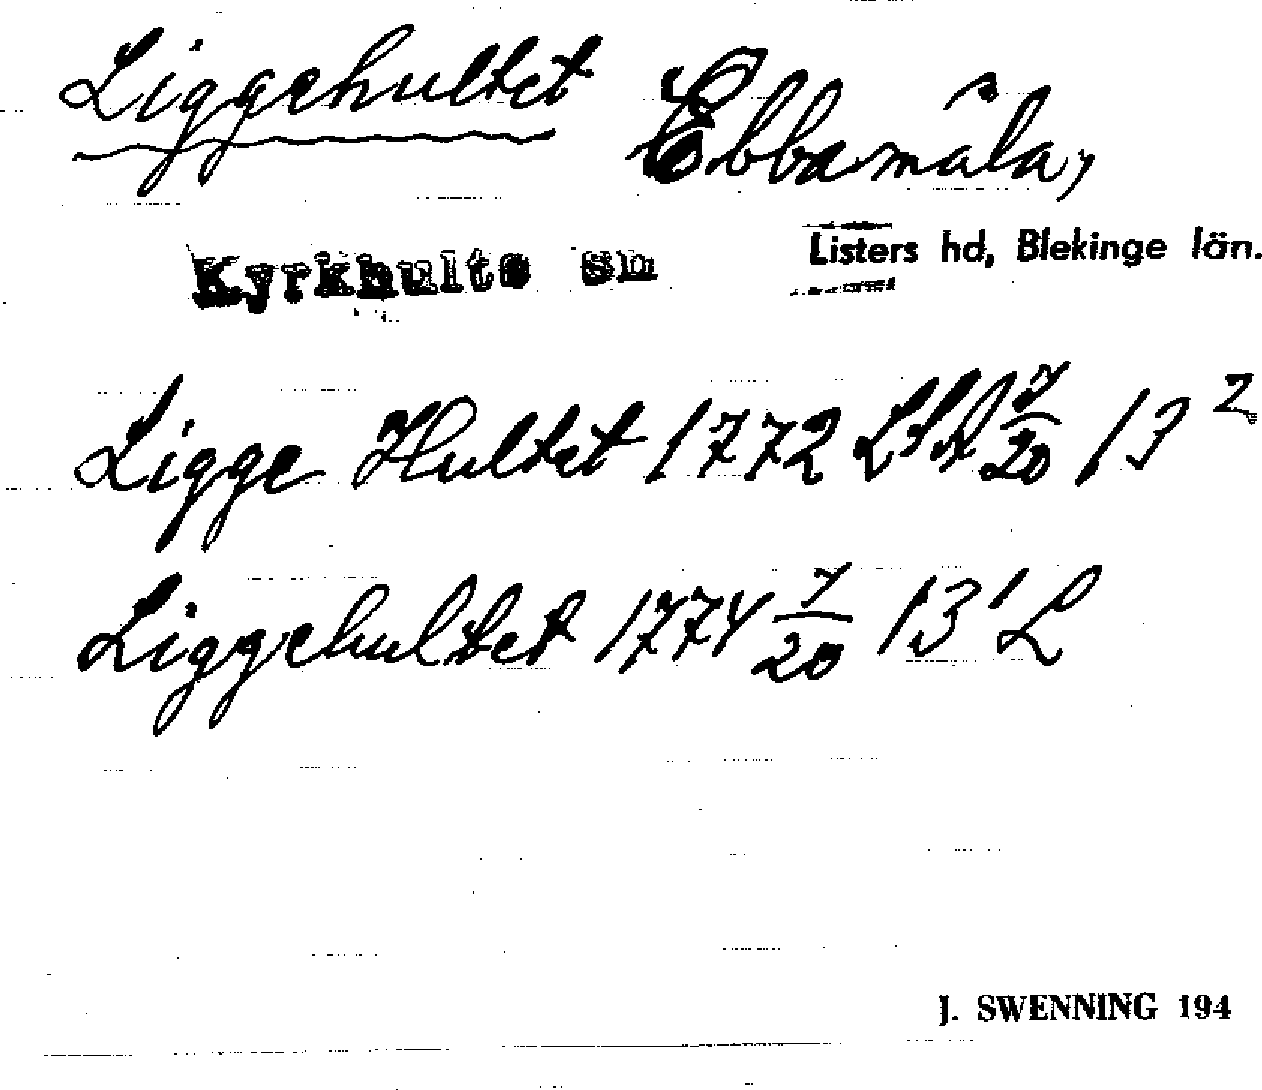 Liggehultet Ebbamåla,
Kyrkhults sn Listers hd, Blekinge län.
Ligge Hultet 1772 LSA 7/20 13 2
Liggehultet 1774 7/20 13 1 L
J. SWENNING 194